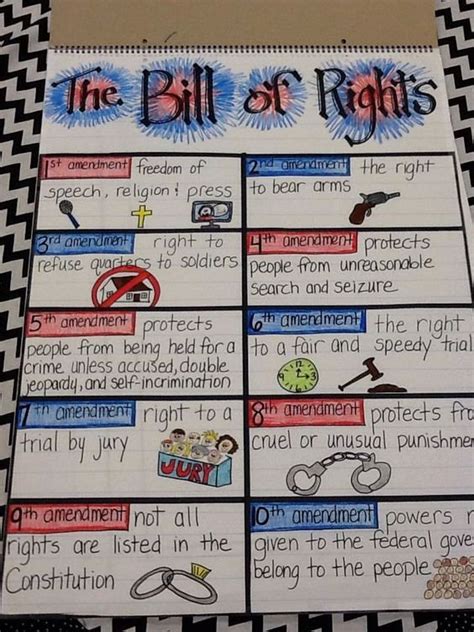 The Bill of Rights
1st amendment freedom of
speech, religion & press
2nd amendment the right
to bear arms
3rd amendment right to
refuse quarters to soldiers
4th amendment protects
people from unreasonable
search and seizure
5th amendment protects
people from being held for a
crime unless accused, double
jeopardy, and self-incrimination
6th amendment the right
to a fair and speedy trial
7th amendment right to a
trial by jury
JURY
8th amendment protects
cruel or unusual
9th amendment not all
rights are listed in the
Constitution
10th amendment powers
given to the federal
belong to the people